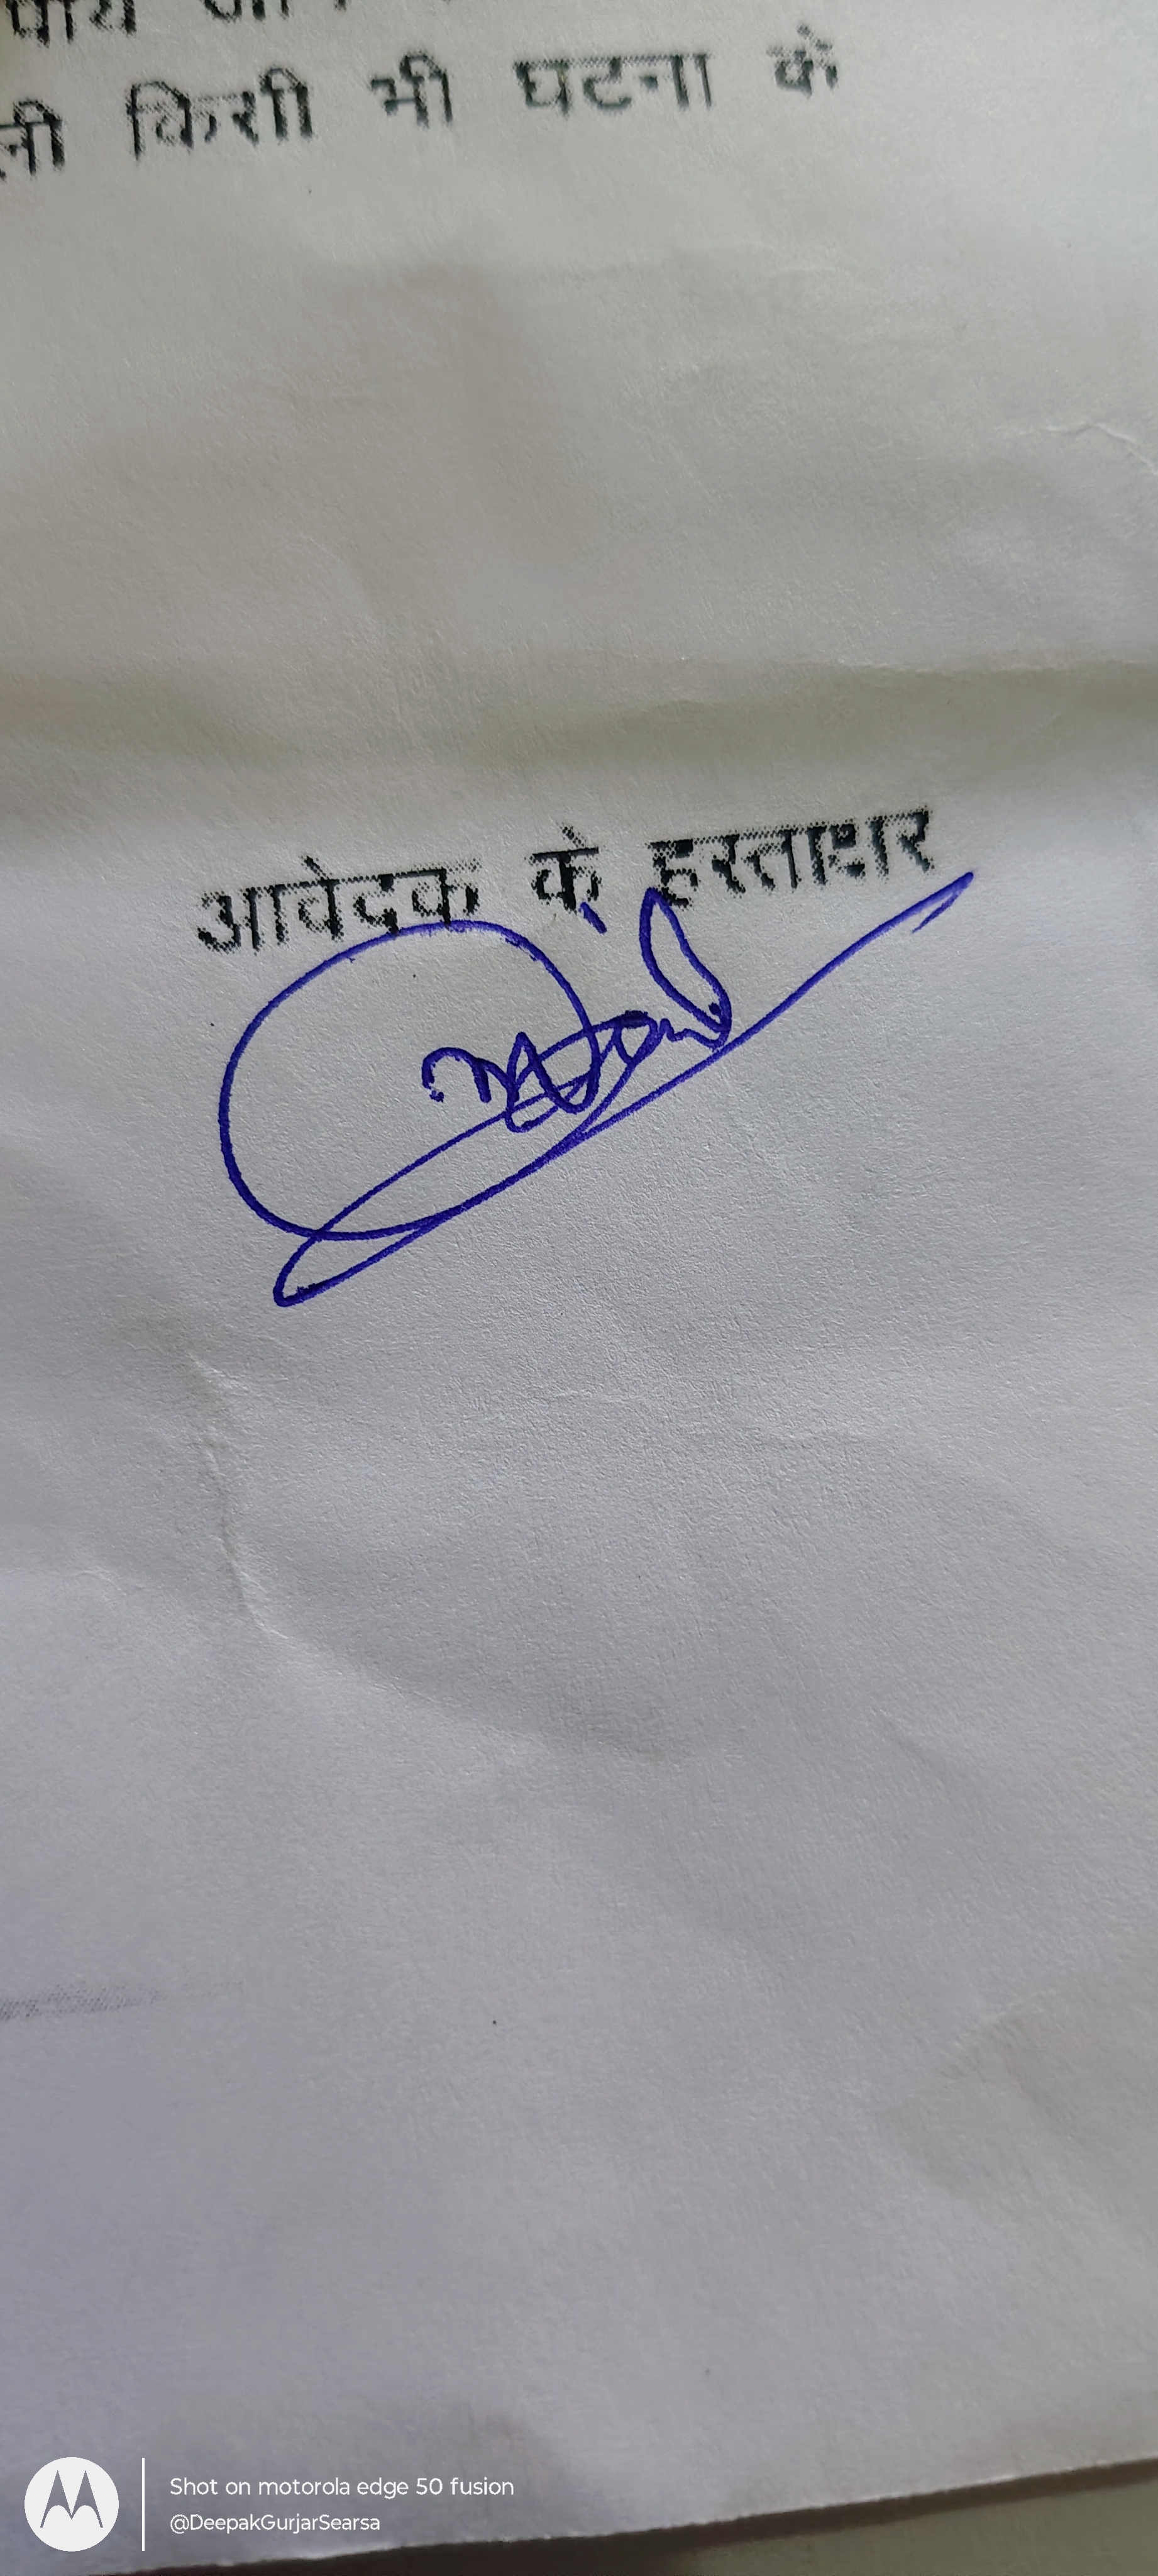 किसी भी घटना के
आवेदक के हस्ताक्षर
Shot on motorola edge 50 fusion
@DeepakGurjarSearsa